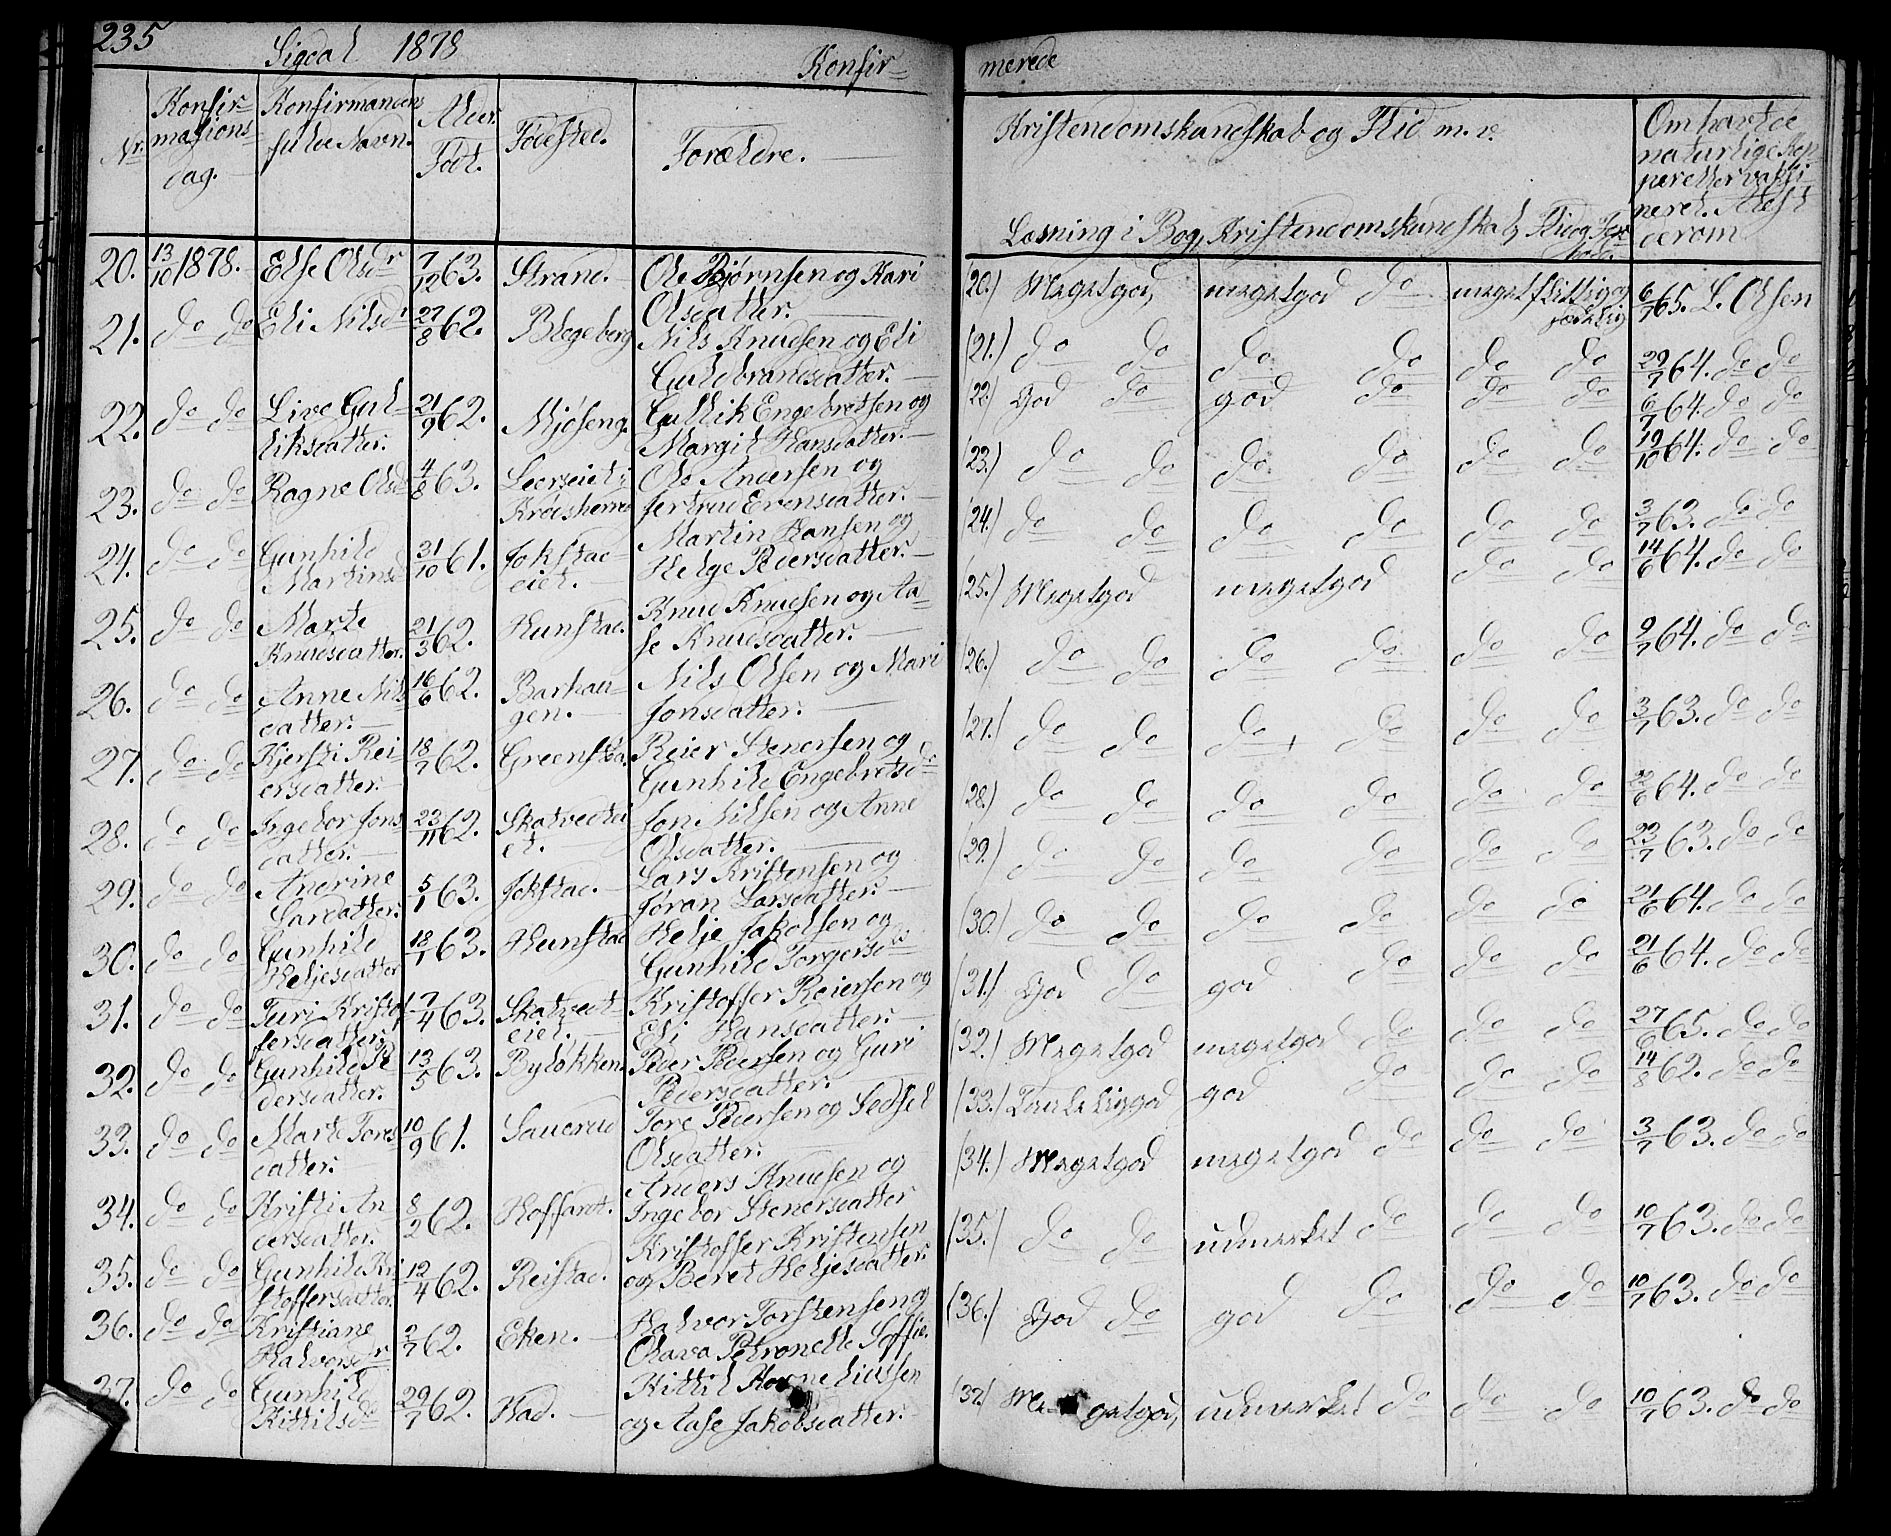 235
Sigdal 1878 Konfir-
merede
Nr. Konfir-mations-dag. Konfirmandens fulde Navn. Alder. Født. Fødested. Forældre.
Kristendomskundskab og Flid m. v.
Læsning i Bog, Kristendomskundskab, Flid og
Om havt de naturlige Kop-per eller vaksi-neret. Attest derom
20. 13/10 1878. Else Olsdr 7/12 63. Strand. Ole Bjørnsen og Kari
Olsdatter.
21. do do Eli Nilsdr 27/8 62. Blegeberg Nils Knudsen og Eli
Guldbrandsdatter.
22. do do Live Gul- 21/9 62. Mjøseng. Gullik Engebretsen og
liksdatter. Margit Hansdatter.
23. do do Ragne Olsd 4/8 63. Leerseiet i Ole Andersen og
Krødsherred Jertrud Evensdatter.
24. do do Gunhild 31/10 61. Jokstad- Martin Hansen og
Martinsd eiet. Helge Pedersdatter.
25. do do Marte 21/3 62. Hunstad. Knud Knudsen og Aa-
Knudsdatter. se Knudsdatter.
26. do do Anne Nils 16/6 62. Barhau- Nils Olsen og Mari
datter. gen. Jonsdatter.
27. do do Kjersti Rei- 18/7 62. Greensha. Reier Stenersen og
ersdatter. Gunhild Engebretsd
28. do do Ingebor Jons 23/11 62. Skatvedtei Jon Nilsen og Anne
datter. et. Olsdatter.
29. do do Andrine 5/1 63. Jokstad. Lars Kristensen og
Larsdatter. Jøran Larsdatter.
30. do do Gunhild 18/1 63. Hunstad Helje Jakobsen og
Heljesdatter Gunhild Torgersdr
31. do do Turi Kristof 7/4 63. Skatvedt- Kristoffer Reiersen og
fersdatter eiet. Eli Hansdatter.
32. do do Gunhild Pe 13/5 63. Byløkken. Peder Pedersen og Guri
dersdatter. Pedersdatter.
33. do do Mart Tores 10/9 61. Sauerud Tore Pedersen og Sedsel
datter. Olsdatter.
34. do do Kristi An 8/2 62. Hoffardt. Anders Knudsen og
dersdatter. Ingebor Stenersdatter
35. do do Gunhild Kri 12/4 62. Reistad. Kristoffer Kristensen
stoffersdatter. og Beret Heljesdatter.
36. do do Kristiane 2/7 62. Eken. Halvor Torstensen og
Halvorsdr Olava Petronelle Soffie.
37. do do Gunhild 29/7 62. Had. Kittil Korneliussen
Kittilsd og Aase Jakobsdatter.
(20.) Megetgod, megetgod do meget flittig og sædelig 6/7 65. L. Olsen
(21.) do do do do do do 29/7 64. do do
(22.) God do god do do do 6/7 64. do do
(23.) do do do do do do 19/10 64. do do
(24.) do do do do do do 3/7 63. do do
(25.) Megetgod megetgod do do 14/6 64. do do
(26.) do do do do do do 9/7 64. do do
(27.) do do do do do do 3/7 63. do do
(28.) do do do do do do 22/6 64. do do
(29.) do do do do do do 23/7 63. do do
(30.) do do do do do do 21/6 64. do do
(31.) God do god do do do 21/6 64. do do
(32.) Megetgod megetgod do do do 27/6 65. do do
(33.) Taaleliggod god do do do 14/8 62. do do
(34.) Megetgod megetgod do do do 3/7 63. do do
(35.) do do udmerket do do do 10/7 63. do do
(36.) God do god do do do 10/7 63. do do
(37.) Megetgod, udmerket do do do 10/7 63. do do